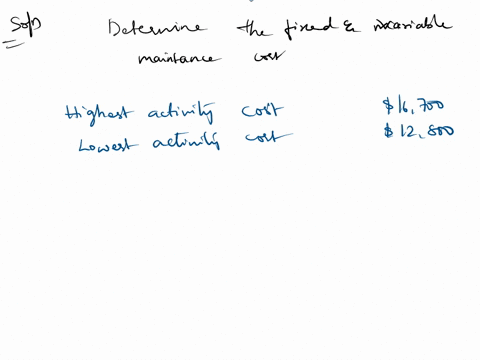 Soln Determine the fixed & variable
maintance cost
Highest activity cost $16,700
Lowest activity cost $12,800